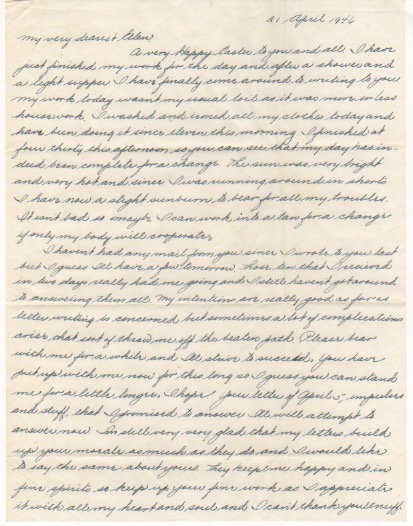 21 April 1946
My very dearest Elen
A very Happy Easter to you and all. I have
just finished my work for the day and after a shower and
a light supper I have finally come around to writing to you
my work today wasn't my usual toil as it was more or less
housework. I washed and ironed all my clothes today and
have been doing it since eleven this morning. I finished at
four thirty this afternoon so you can see that my day has in-
deed been complete for a change. The sun was very bright
and very hot and since I was running around in shorts
I have now a slight sunburn to bear for all my troubles.
It isnt bad so maybe I can work into a tan for a change
if only my body will cooperate.
I haven't had any mail from you since I wrote to you last
but I guess Ill have a few tomorrow. Those ten that I received
in two days really had me going and I still havent got around
to answering them all. My intentions are really good as far as
letter writing is concerned but sometimes a lot of complications
arise that sort of throw me off the beaten path. Please bear
with me for a while and Ill strive to succeed. You have
put up with me now for this long so I guess you can stand
me for a little longer, I hope. Your letter of April 5,
and stuff, that I promised to answer Ill will attempt to
answer now. Im still very very glad that my letters build
up your morale as much as they do and I would like
to say the same about yours. They keep me happy and in
fine spirits so keep up your fine work as I appreciate
it with all my heart and soul and I can't thank you enuff.